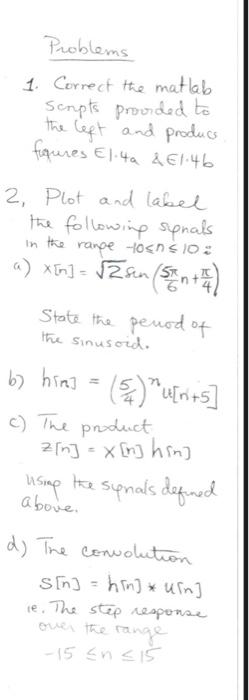 Problems
1. Correct the matlab
scripts provided to
the left and produce
figures E1.4a & E1.4b
2, Plot and label
the following signals
in the range -10≤n≤10:
a) x[n] = √2 sin (5π/6 n + π/4)
State the period of
the sinusoid.
b) h[n] = (5/4)^n u[n+5]
c) The product
z[n] = x[n] h[n]
using the signals defined
above.
d) The convolution
s[n] = h[n] * u[n]
ie. The step response
over the range
-15 ≤ n ≤ 15